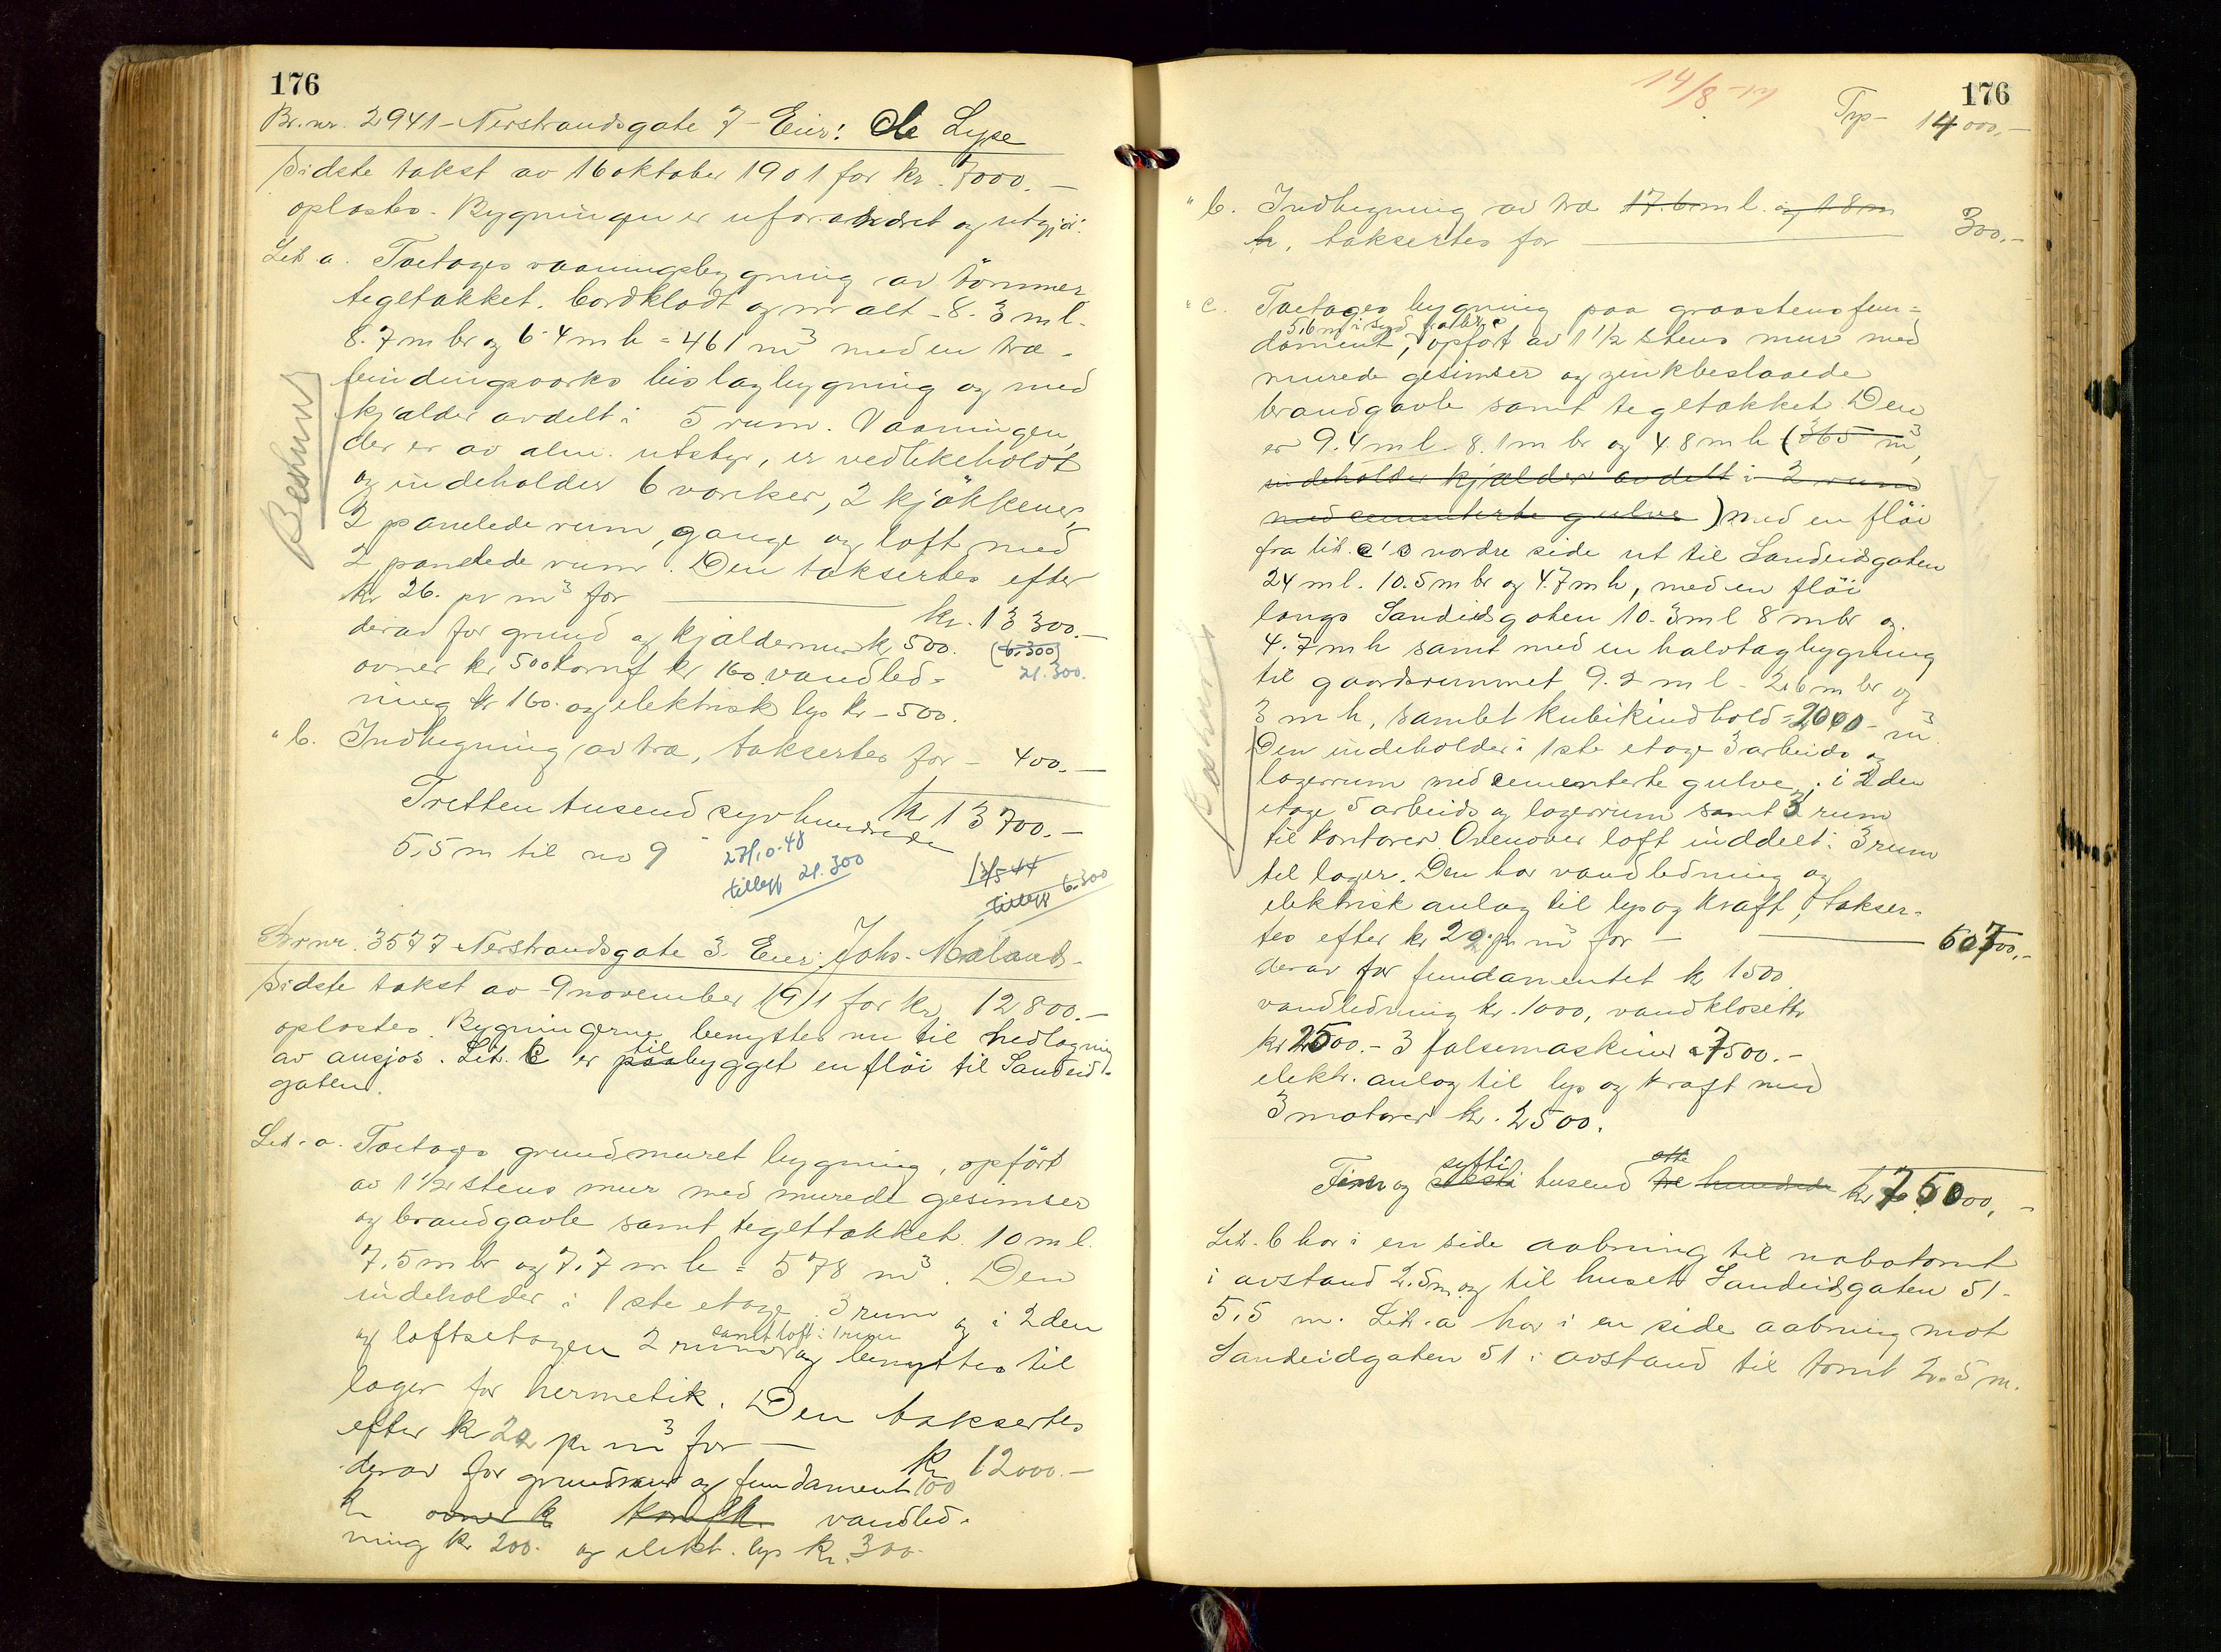 176
Br.nr. 2941 - Nerstrandsgate 7 - Eier: Ole Lyse
Sidste takst av 16 oktober 1901 for kr. 7000.-
oplæstes. Bygningen er uforandret og utgjør:
Lit a. Toetages vaaningsbygning av tømmer
tegltækket, bordklædt og maalt - 8.3 m l.
8.7 m br og 6.4 m h = 461 m³ med en træ-
bindingsverks bislagbygning og med
kjælder avdelt i 5 rum. Vaaningen,
der er av alm. utstyr, er vedlikeholdt
og indeholder 6 værelser, 2 kjøkkener,
2 panelede rum, gange og loft med
2 panelede rum. Den takseres efter
kr 26. pr m³ for kr. 13300.-
derav for grund og kjældermur kr 500. (6.300)
ovner kr 500 komf kr 160 vandled- 21.300.
ning kr 160. og elektrisk lys kr - 500.
Beskrives
" b. Indhegning av træ, takseres for - 400.-
kr 13700.-
Tretten tusend syvhundrede
5,5 m til no 9
27/10-48
tillegg 21.300
13/5 44
tillegg 6.300
Br.nr. 3577 Nerstrandsgate 3. Eier: Johs. Maland.
Sidste takst av 9 november 1911 for kr. 12800.-
oplæstes. Bygningerne benyttes nu til nedlægning
av ansjos. Lit. c er til paabygget en fløi til Sandeid-
gaten.
Lit. a. Toetages grundmuret bygning, opført
av 1½ stens mur med murede gesimser
og brandgavle samt tegltækket. 10 m l.
7,5 m br og 7,7 m h = 578 m³. Den
indeholder i 1ste etage 3 rum og i 2den
og loftsetagen 2 rum samt loft i 1 rum og benyttes til
lager for hermetik. Den takseres
efter kr 20 pr m³ for -
kr 12000.-
derav for grundmur og fundament 100
kr ovner kr komf kr. vandled-
ning kr 200. og elekt. lys kr. 300.
14/8-44
176
Trp- 14000,-
" b. Indhegning av træ 17.6 m l. og 1.8 m
h, takseres for 300.-
" c. Toetages bygning paa graastensfun-
5,6 m i syd fra br c
dament, opført av 1½ stens mur med
murede gesimser og zinkbeslaaede
brandgavle samt tegltækket. Den
er 9.4 m l. 8.1 m br og 4.8 m h (365 m³,
indeholder kjælder avdelt i 2 rum
med cementerte gulve) med en fløi
fra lit. c's nordre side ut til Sandeidgaten
24 m l. 10.5 m br og 4.7 m h, med en fløi
langs Sandeidgaten 10.3 m l 8 m br og
4.7 m h samt med en halvtagbygning
til gaardsrummet 9.2 m l - 2.6 m br og
3 m h, samlet kubikindhold = 2000 - m³
Den indeholder i 1ste etage 3 arbeids og
lagerrum med cementerte gulve, i 2den
etage 5 arbeids og lagerrum samt 3 rum
til kontorer. Ovenover loft inddelt i 3 rum
til lager. Den har vandledning og
elektrisk anlæg til lys og kraft, takser-
Beskrives
tes efter kr 22. pr m³ for - 60700,-
derav for fundamentet kr 1500
vandledning kr. 1000, vandklosett
kr 2500.- 3 falsemaskiner a 7500.-
elektr. anlæg til lys og kraft med
3 motorer kr. 2500.
sytti otte
Fem og seksti tusend tre hundrede kr 75000,-
Lit. b har i en side aabning til nabotomt
i avstand 2.5 m og til huset Sandeidgaten 51 -
5,5 m. Lit. a har i en side aabning mot
Sandeidgaten 51 i avstand til tomt 2.5 m.